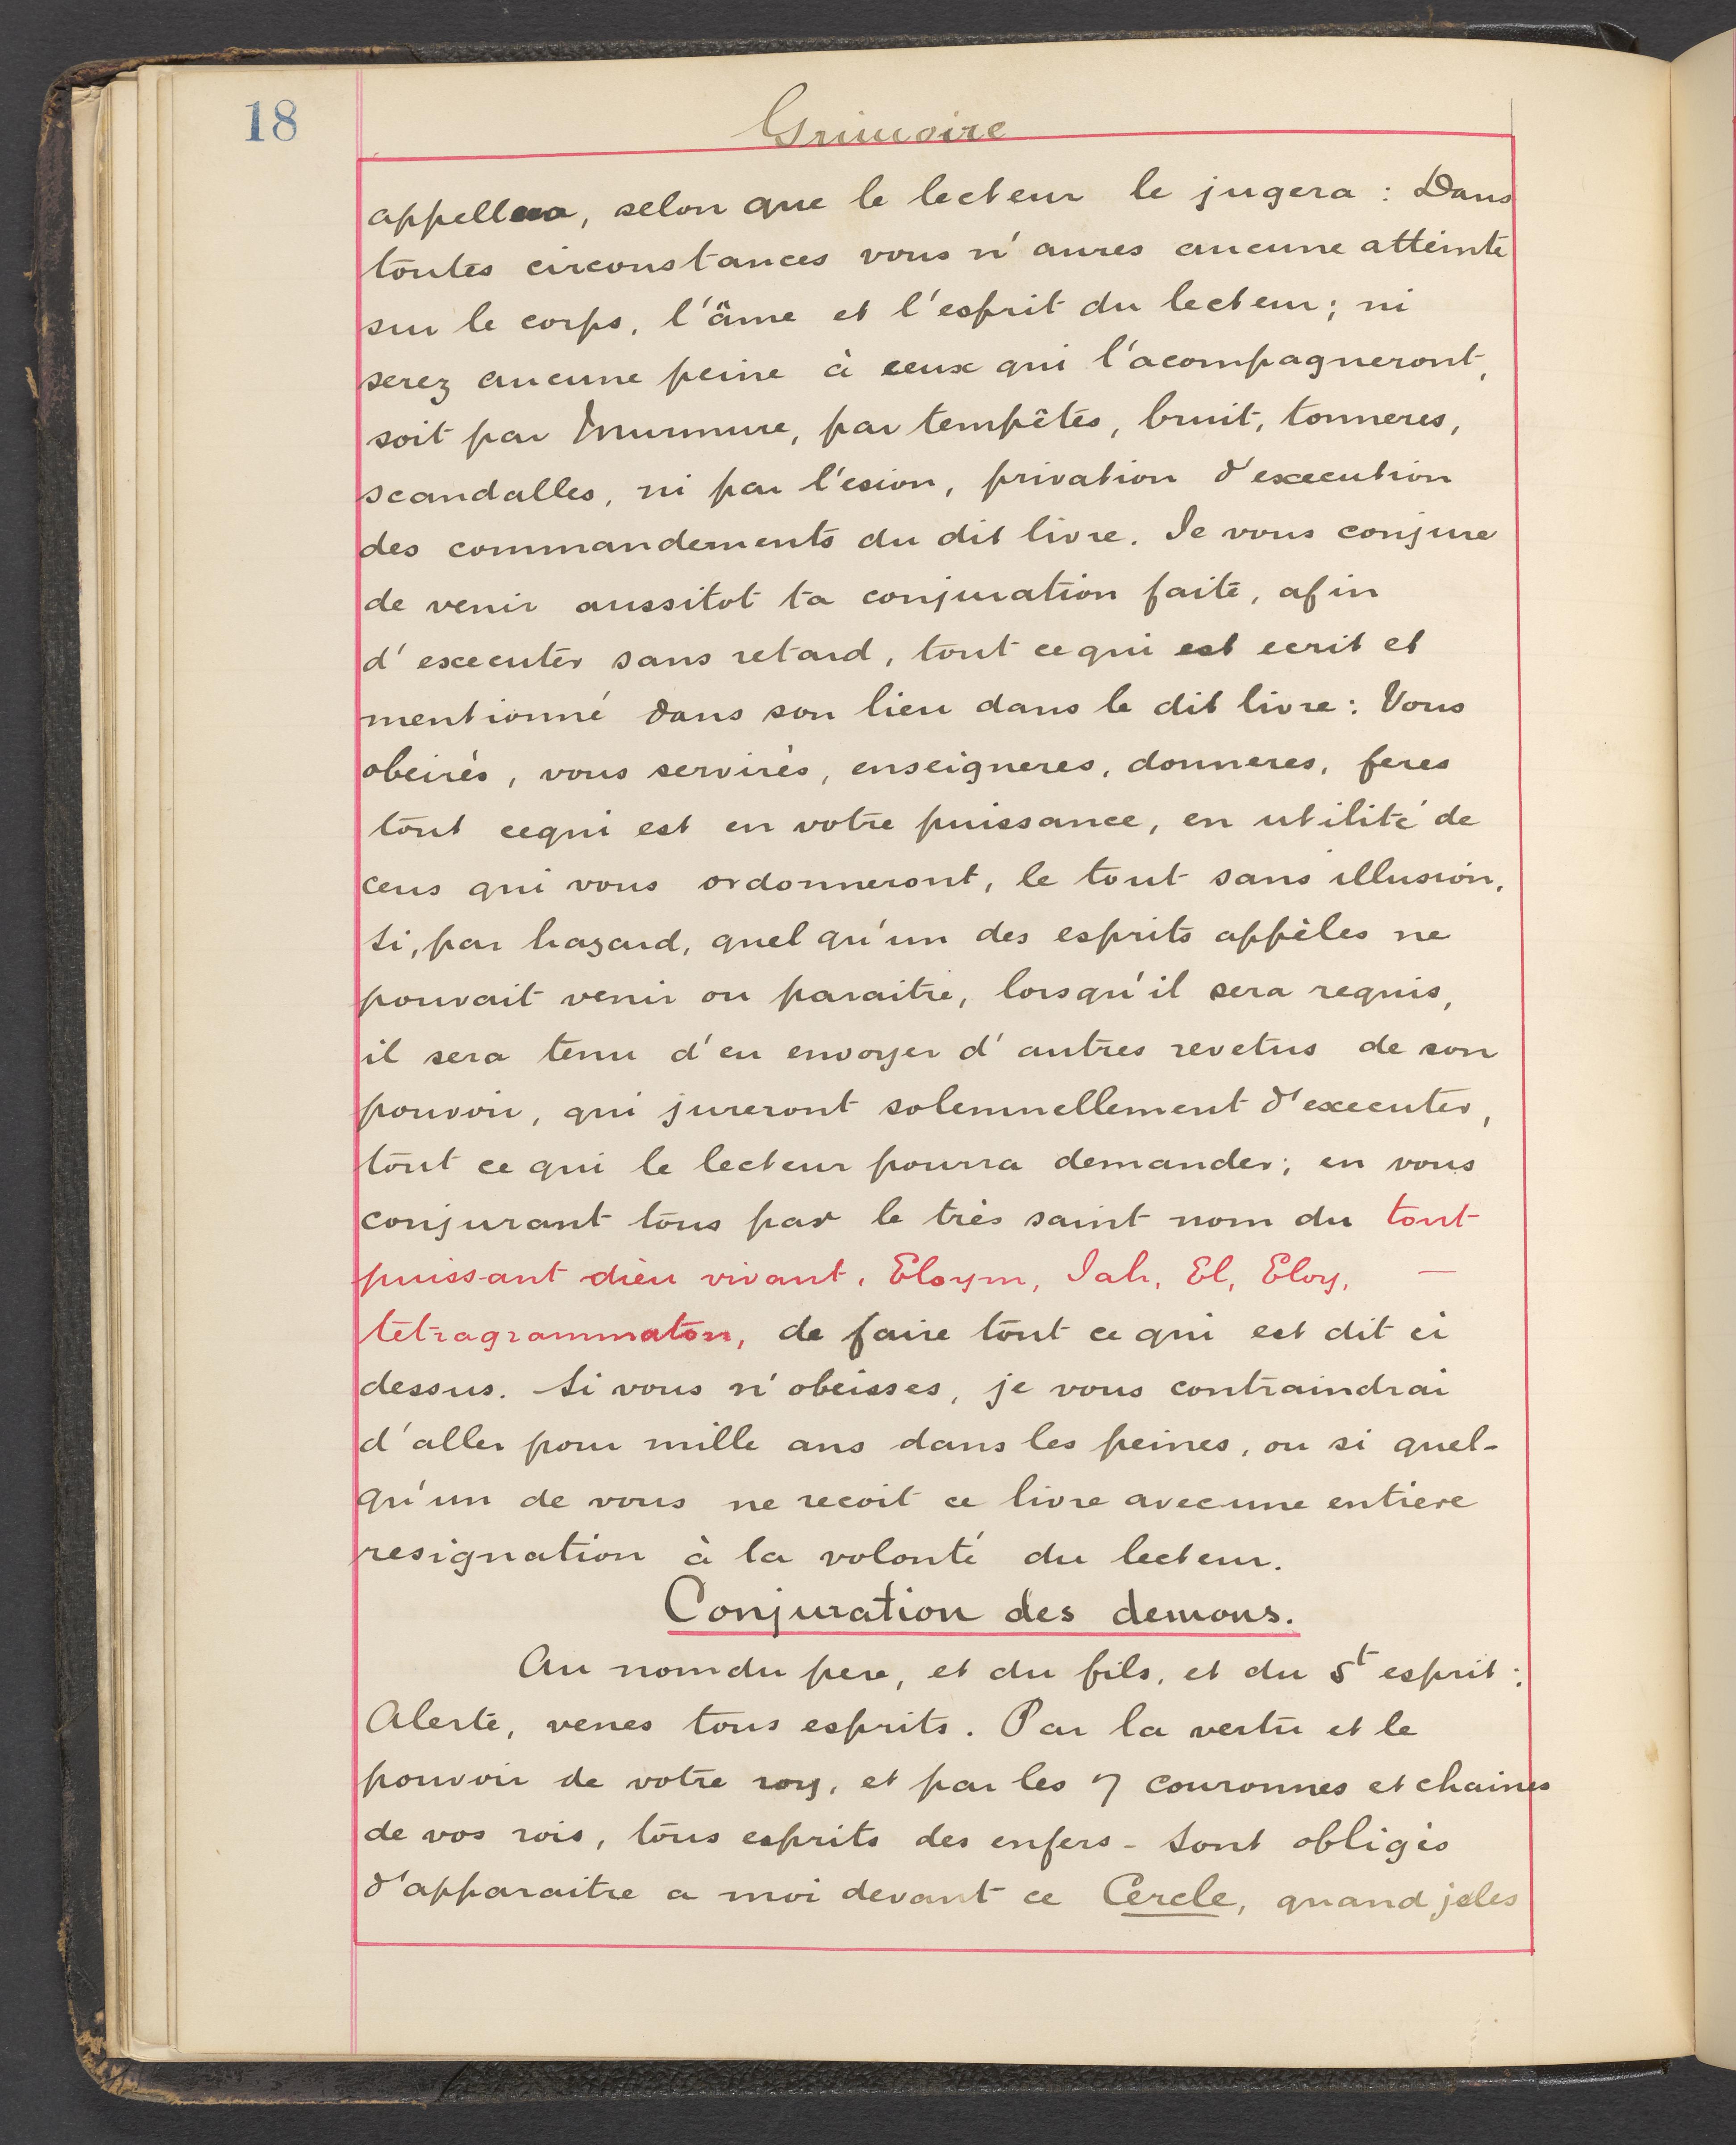 18
Grimoire
appellera, selon que le lecteur le jugera : Dans
toutes circonstances vous n'aures aucune atteinte
sur le corps, l'âme et l'esprit du lecteur; ni
serez aucune peine à ceux qui l'acompagneront,
soit par Murmure, par tempêtes, bruit, tonneres,
scandalles, ni par l'esion, privation d'execution
des commandements du dit livre. Je vous conjure
de venir aussitot ta conjuration faite, afin
d'executer sans retard, tout ce qui est ecrit et
mentionné dans son lieu dans le dit livre : Vous
obeirès, vous servirès, enseigneres, donneres, feres
tout cequi est en votre puissance, en utilité de
ceus qui vous ordonneront, le tout sans illusion.
Si, par hazard, quel qu'un des esprits appèles ne
pouvait venir ou paraitre, lorsqu'il sera requis,
il sera tenu d'en envoyer d'autres revetus de son
pouvoir, qui jureront solemnellement d'executer,
tout ce qui le lecteur pourra demander; en vous
conjurant tous par le très saint nom du tout
puissant dieu vivant, Eloym, Jah, El, Eloy, —
tetragrammaton, de faire tout ce qui est dit ci
dessus. Si vous n'obeisses, je vous contraindrai
d'aller pour mille ans dans les peines, ou si quel-
qu'un de vous ne recoit ce livre avec une entiere
resignation à la volonté du lecteur.
Conjuration des demons.
Au nom du pere, et du fils, et du St esprit :
Alerte, venes tous esprits. Par la vertu et le
pouvoir de votre roy, et par les 7 couronnes et chaines
de vos rois, tous esprits des enfers - sont obligès
d'apparaitre a moi devant ce Cercle, quand je les